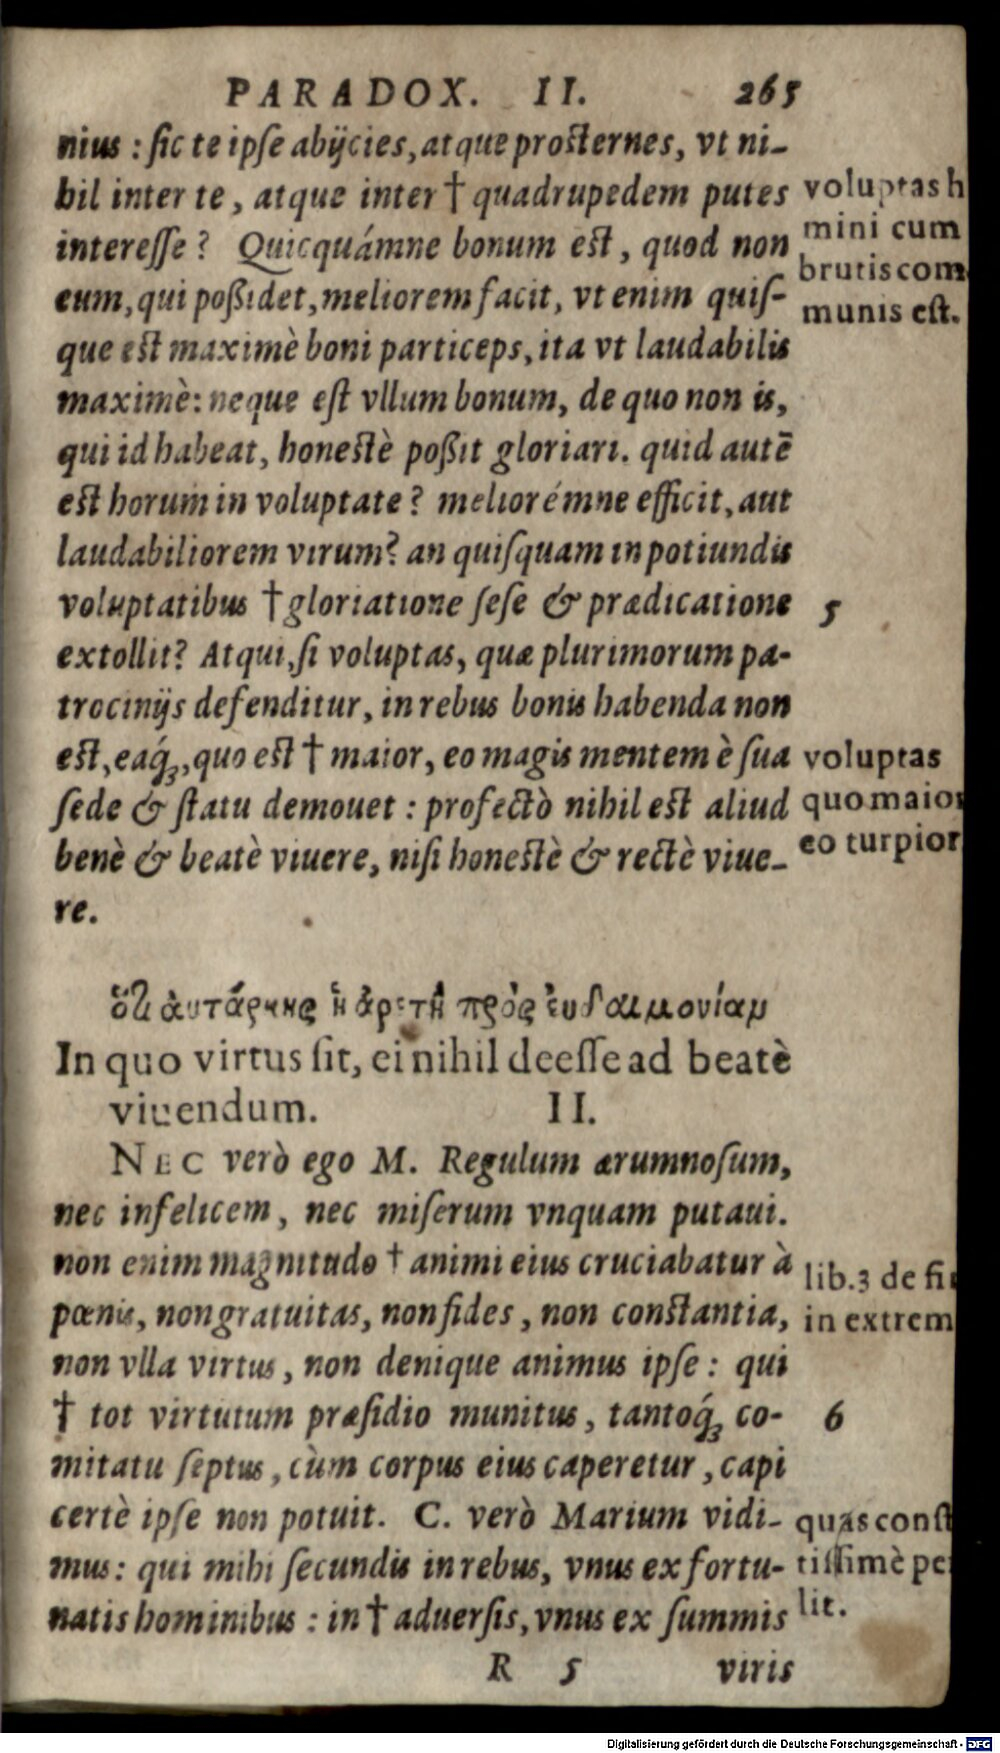 PARADOX. II. 265
nius : sic te ipse abijcies, atque prosternes, vt ni-
hil inter te, atque inter † quadrupedem putes
interesse ? Quicquámne bonum est, quod non
eum, qui poßidet, meliorem facit, vt enim quis-
que est maximè boni particeps, ita vt laudabilis
maximè: neque est vllum bonum, de quo non is,
qui id habeat, honestè poßit gloriari. quid autē
est horum in voluptate ? meliorémne efficit, aut
laudabiliorem virum? an quisquam in potiundis
voluptatibus † gloriatione sese & prædicatione
extollit? Atqui, si voluptas, quæ plurimorum pa-
trocinijs defenditur, in rebus bonis habenda non
est, eaq́;, quo est † maior, eo magis mentem è sua
sede & statu demouet : profectò nihil est aliud
benè & beatè viuere, nisi honestè & rectè viue-
re.
voluptas h
mini cum
brutis com
munis est.
5
voluptas
quo maior
eo turpior
ὅτι ἀυτάρκης ἡ ἀρετὴ πρὸς ἐυδαιμονίαμ
In quo virtus sit, ei nihil deesse ad beatè
viuendum. II.
NEC verò ego M. Regulum ærumnosum,
nec infelicem, nec miserum vnquam putaui.
non enim magnitudo † animi eius cruciabatur à
pœnis, non gratuitas, non fides, non constantia,
non vlla virtus, non denique animus ipse : qui
† tot virtutum præsidio munitus, tantoq́; co-
mitatu septus, cùm corpus eius caperetur, capi
certè ipse non potuit. C. verò Marium vidi-
mus: qui mihi secundis in rebus, vnus ex fortu-
natis hominibus : in † aduersis, vnus ex summis
lib.3 de fi
in extrem
6
quas const
tissimè pe
lit.
R 5 viris
Digitalisierung gefördert durch die Deutsche Forschungsgemeinschaft - DFG